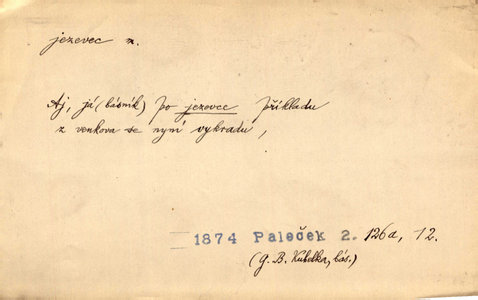 jezevec m.
Aj, já (básník) po jezovce příkladu
z venkova se nyní vykradu,
1874 Paleček 2. 126a, 12.
(G. B. Kubelka, bás.)